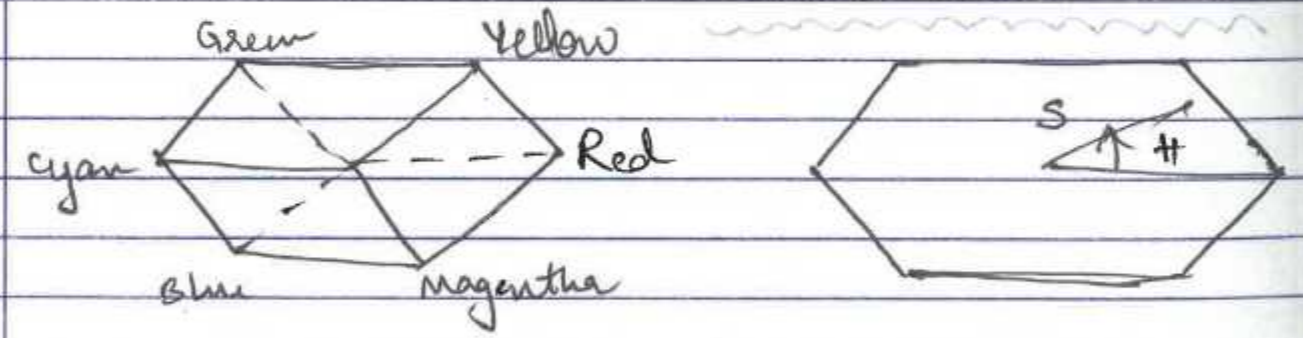 Green Yellow
S
H
Cyan Red
Blue Magentha